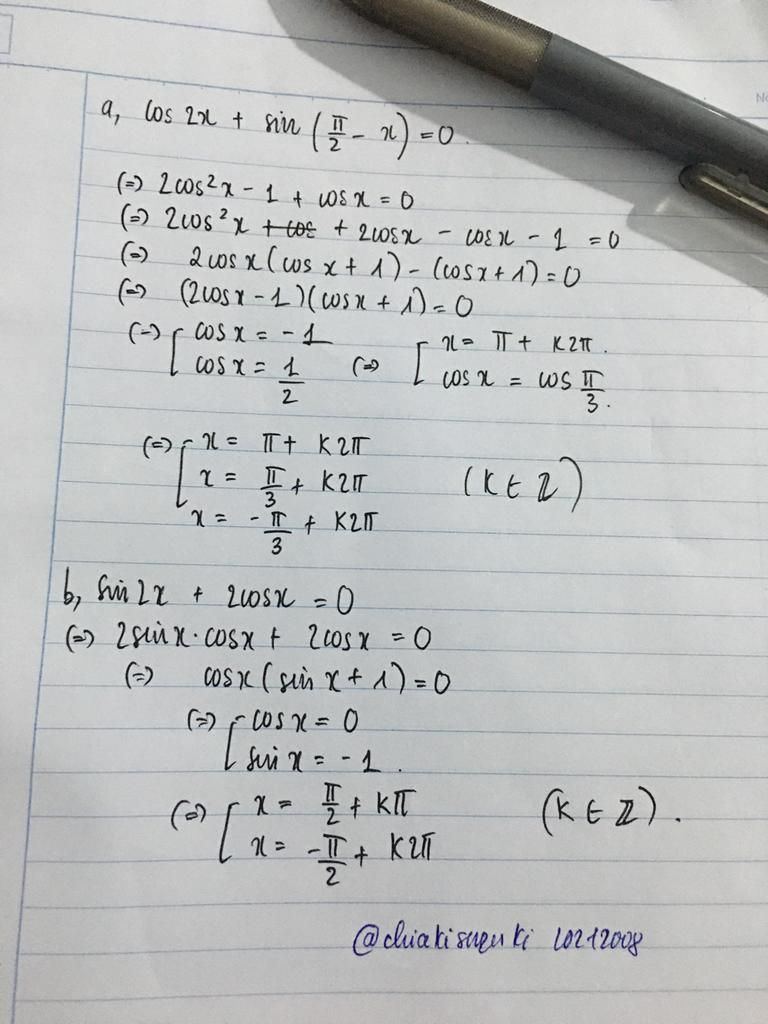 a, cos 2x + sin (π/2 - x) = 0.
(=) 2cos²x - 1 + cosx = 0
(=) 2cos²x + cos + 2cosx - cosx - 1 = 0
(=) 2cosx(cosx + 1) - (cosx + 1) = 0
(=) (2cosx - 1)(cosx + 1) = 0
(=) [ cosx = -1
cosx = 1/2
(=) [ x = π + k2π.
cosx = cos π/3.
(=) [ x = π + k2π
x = π/3 + k2π (k ∈ ℤ)
x = -π/3 + k2π
b, sin2x + 2cosx = 0
(=) 2sinx.cosx + 2cosx = 0
(=) cosx(sinx + 1) = 0
(=) [ cosx = 0
sinx = -1.
(=) [ x = π/2 + kπ (k ∈ ℤ).
x = -π/2 + k2π